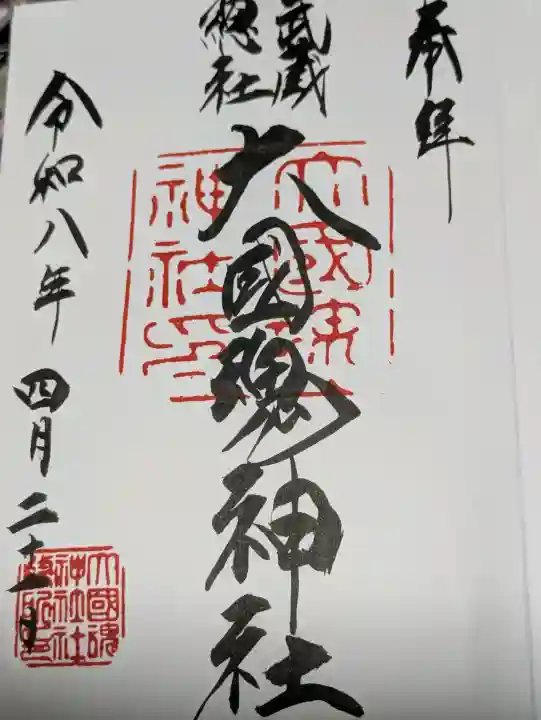 奉拝
武蔵
總社
大國魂神社
令和八年
四月二十一日
大國魂
神社社
務所印